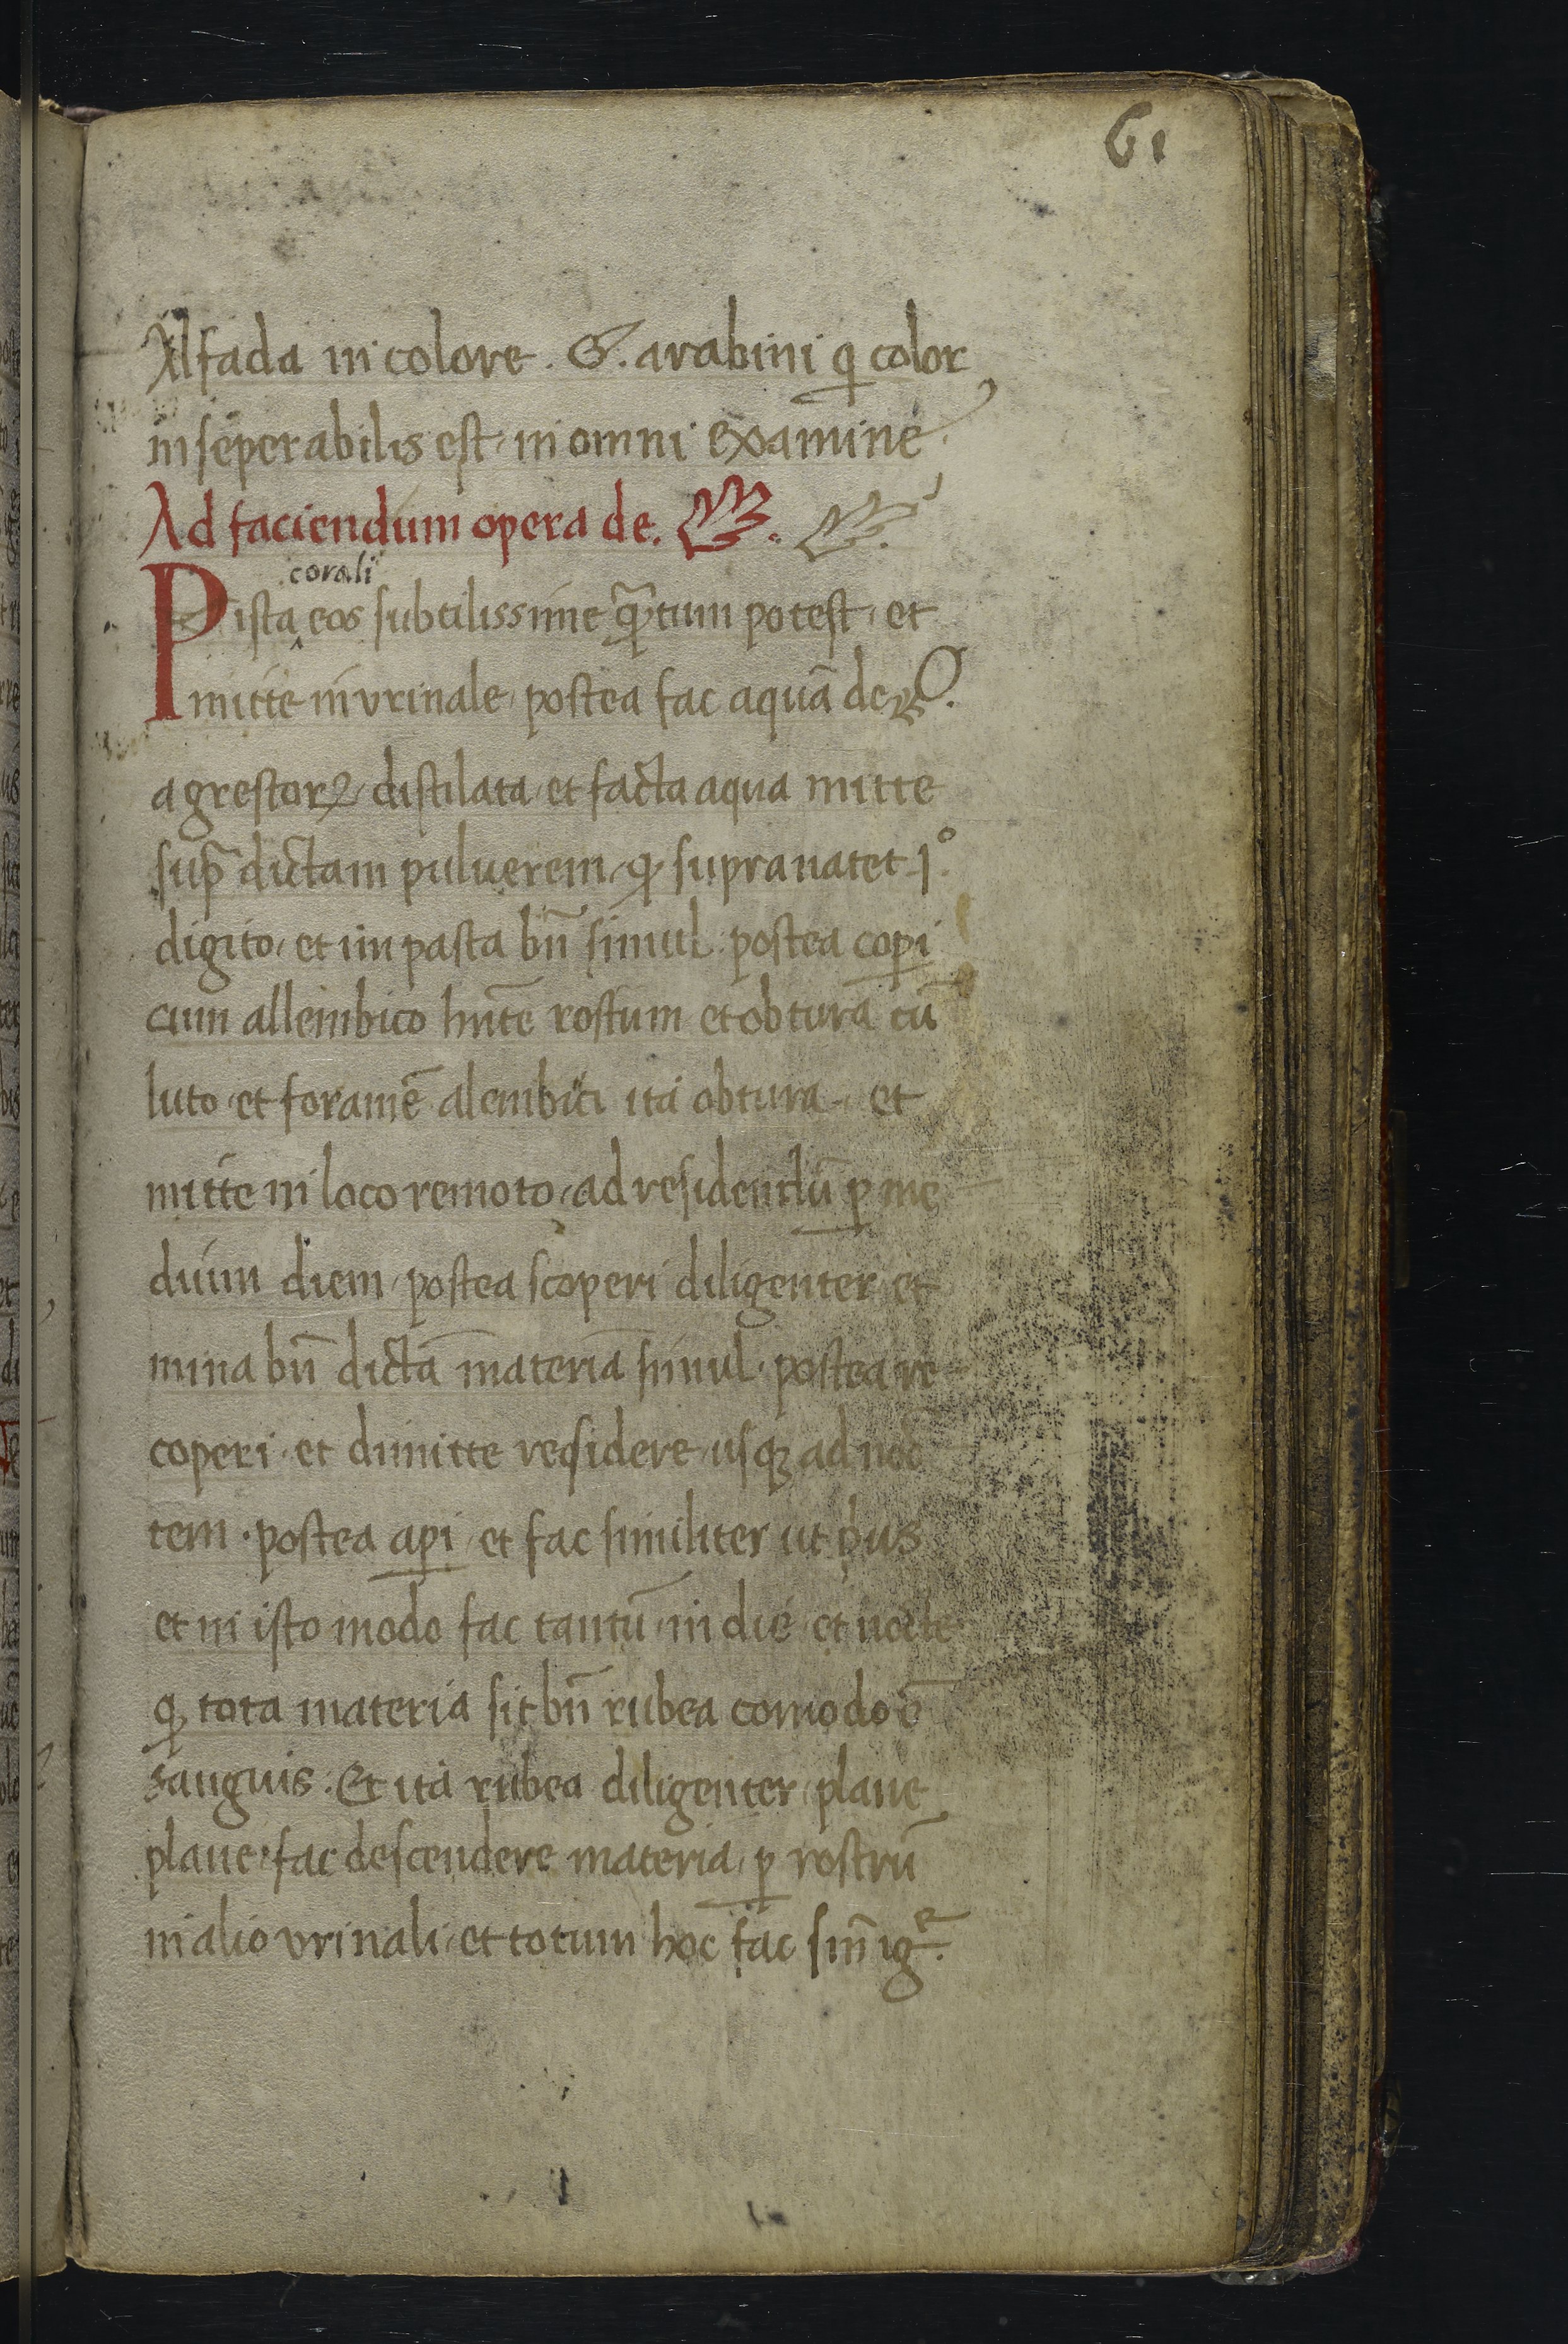 61
Alfada in colore. G. arabini q color
inseperabilis est in omni examine.
Ad faciendum opera de.
corali
Pista eos subtilissime qͣ̃tum potest, et
mitte in vrinale, postea fac aquā de
agrestoꝝ, distilata, et facta aqua mitte
sup̄ dictam puluerem, ꝙ supranatet 1°.
digito, et impasta bn̄ simul. postea coꝑi
cum allembico hn̄te rostum et obtura cū
luto, et foramē alembici ita obtura, et
mitte in loco remoto, ad residendū ꝑ me
dium diem, postea scoperi diligenter, et
mina bn̄ dictā materiā simul. postea re
coperi, et dimitte residere, usqꝫ ad noc
tem. postea aꝑi, et fac similiter ut
et in isto modo fac tantū, in die, et nocte
ꝙ tota materia sit bn̄ rubea comodo ē
sanguis. Et ita rubea diligenter, plane
plane, fac descendere materia, ꝑ rostrū
in alio vrinali, et totum hoc fac sin̄ igᵉ.